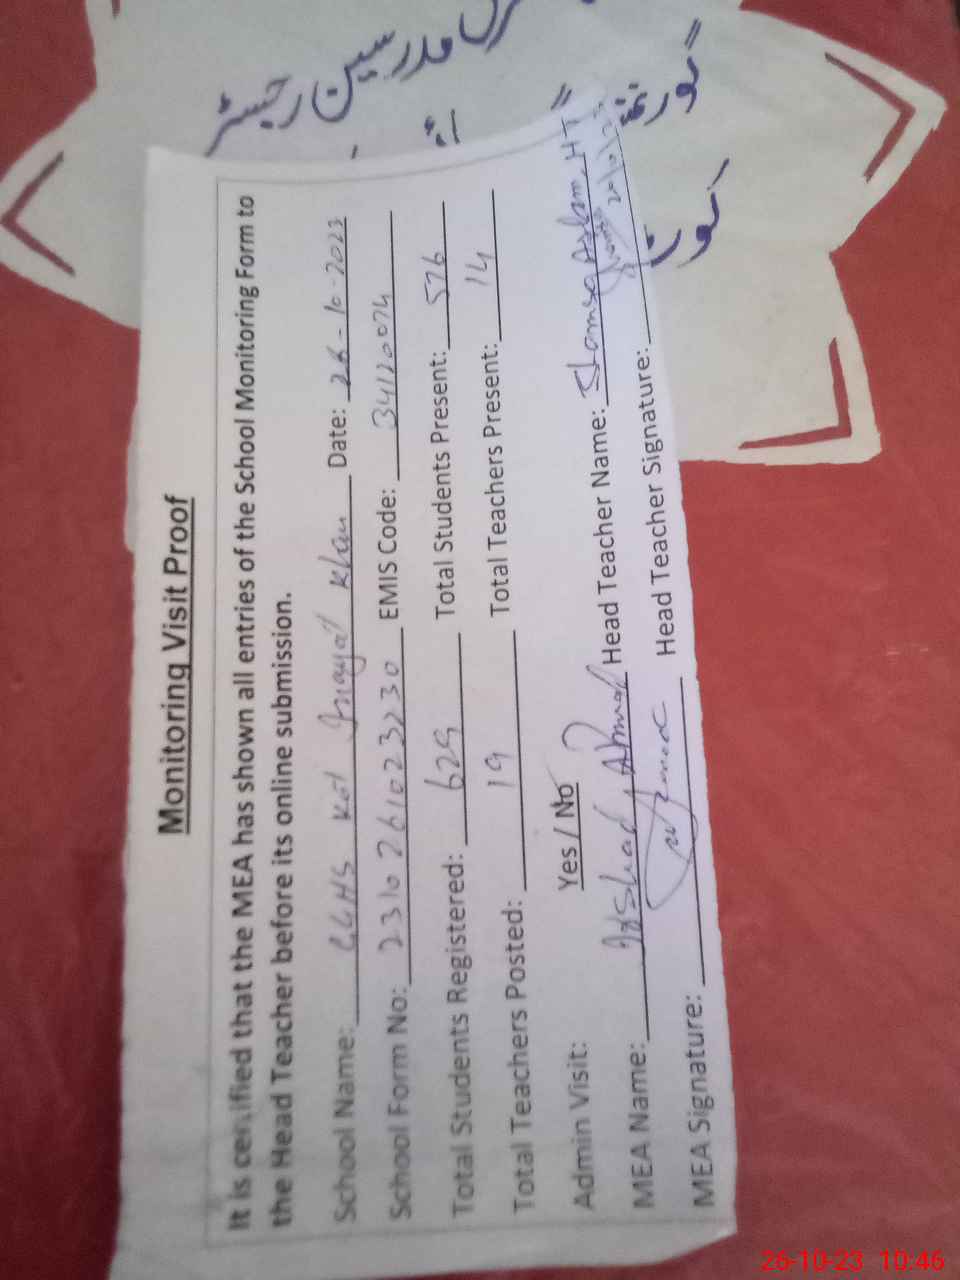 مدرسین رجسٹر
Monitoring Visit Proof
It is certified that the MEA has shown all entries of the School Monitoring Form to
the Head Teacher before its online submission.
School Name: GGHS Kot Inayat Khan Date: 26-10-2023
School Form No: 2310261023230 EMIS Code: 34120074
Total Students Registered: 629 Total Students Present: 576
Total Teachers Posted: 19 Total Teachers Present: 14
Admin Visit: Yes / No
MEA Name: Irshad Ahmad Head Teacher Name: Shamsa Aslam HT
MEA Signature: Head Teacher Signature:
26-10-23 10:46